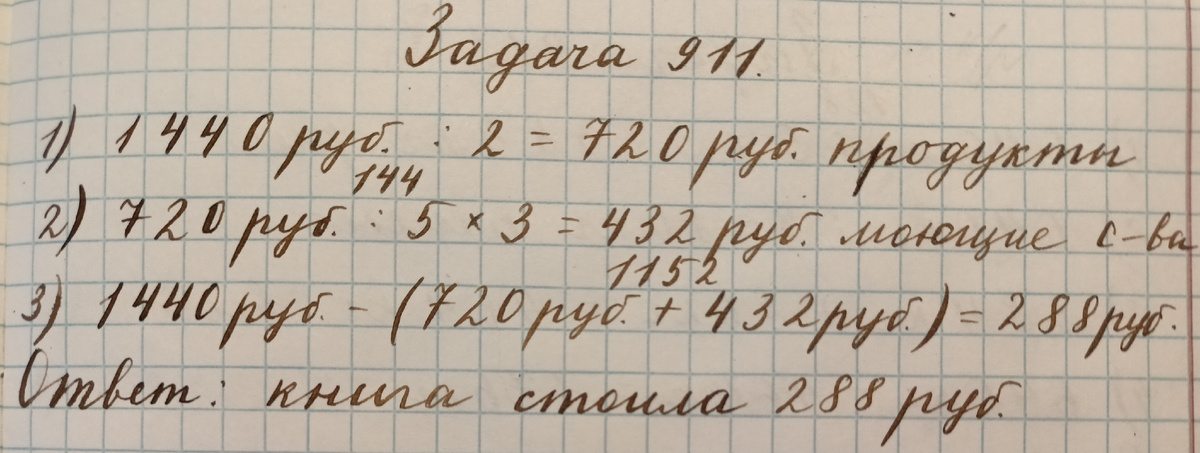 Задача 911.
1) 1440 руб. : 2 = 720 руб. продукты
144
2) 720 руб. : 5 × 3 = 432 руб. моющие с-ва
1152
3) 1440 руб. - (720 руб. + 432 руб.) = 288 руб.
Ответ: книга стоила 288 руб.